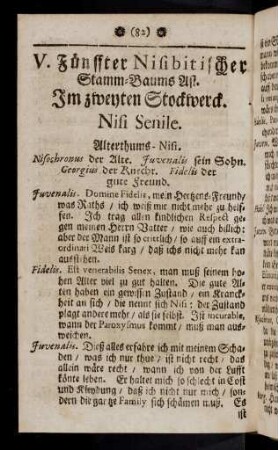 (82)
V. Fünffter Nisibitischer
Stamm-Baums Ast.
Im zweyten Stockwerck.
Nisi Senile.
Alterthums-Nisi.
Nisochronus der Alte. Juvenalis sein Sohn.
Georgius der Knecht. Fidelis der
gute Freund.
Juvenalis. Domine Fidelis, mein Hertzens-Freund/
was Raths / ich weiß mir nicht mehr zu helf-
fen. Ich trag allen kindlichen Respect ge-
gen meinen Herrn Vatter / wie auch billich:
aber der Mann ist so entlich/ so auff ein extra-
ordinari Weis karg / daß ichs nicht mehr kan
ausstehen.
Fidelis. Est venerabilis Senex, man muß seinem ho-
hen Alter viel zu gut halten. Die gute Al-
ten haben ein gewissen Zustand / ein Kranck-
heit an sich / die nennt sich Nisi: der Zustand
plagt andere mehr / als sie selbst. Ist incurable,
wann der Paroxysmus kommt / muß man aus-
weichen.
Juvenalis. Diß alles erfahre ich mit meinem Scha-
den / was ich nur thue / ist nicht recht / das
allein wäre recht / wann ich von der Lufft
könte leben. Er haltet mich so schlecht in Cost
und Kleydung / daß ich nicht nur mich / son-
dern die gantze Family sich schämen muß. Es
ist